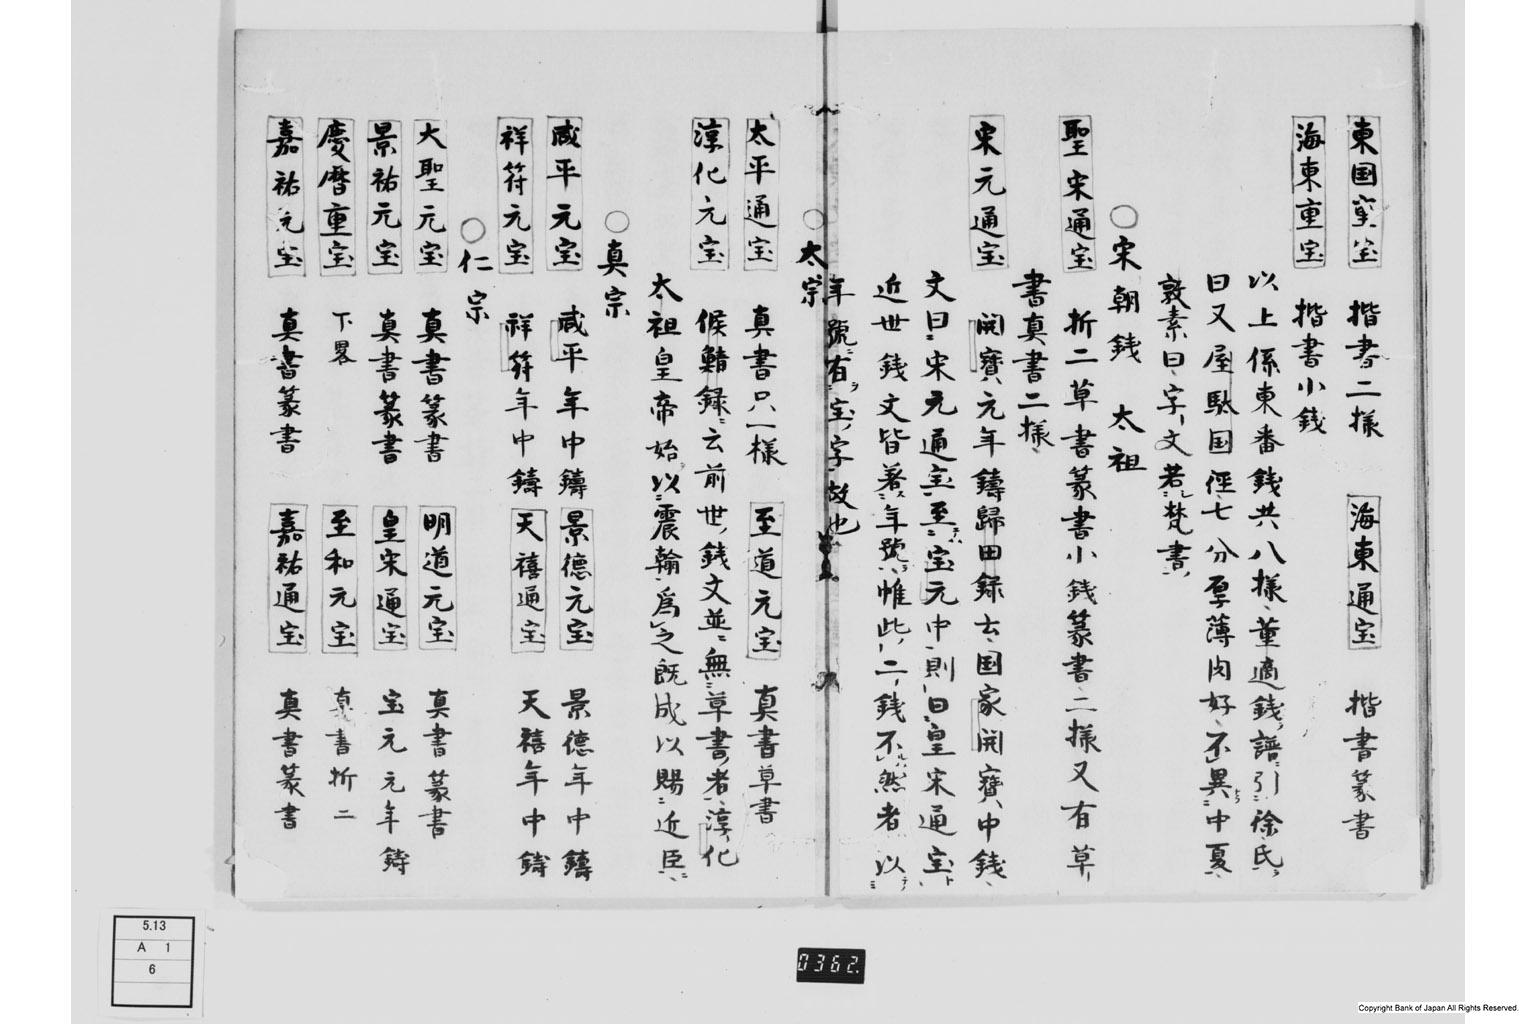 東国宝　揩書二様　海東通宝　揩書篆書
海東重宝　揩書小銭
以上係東番銭共八様董逌銭譜引徐氏
曰又屋駄国径七分厚薄肉好不異中夏
敦素曰字文若梵書
○宋朝銭　太祖
聖宋通宝　折二草書篆書小銭篆書二様又有草
書真書二様
宋元通宝　開寶元年鑄歸田録云国家開寶中銭
文曰宋元通宝至宝元中則曰皇宋通宝
近世銭文皆著年號惟此二銭不然者以
年號有宝字故也
○太宗
太平通宝　真書只一様　至道元宝　真書草書
淳化元宝　候鯖録云前世銭文並無草書者淳化
太祖皇帝始以震翰爲之既成以賜近臣
○真宗
咸平元宝　咸平年中鑄　景德元宝　景德年中鑄
祥符元宝　祥符年中鑄　天禧通宝　天禧年中鋳
○仁宗
大聖元宝　真書篆書　明道元宝　真書篆書
景祐元宝　真書篆書　皇宋通宝　宝元元年鋳
慶暦重宝　下畧　至和元宝　真書折二
嘉祐元宝　真書篆書　嘉祐通宝　真書篆書
5.13
A 1
6
0362.
Copyright Bank of Japan All Rights Reserved.